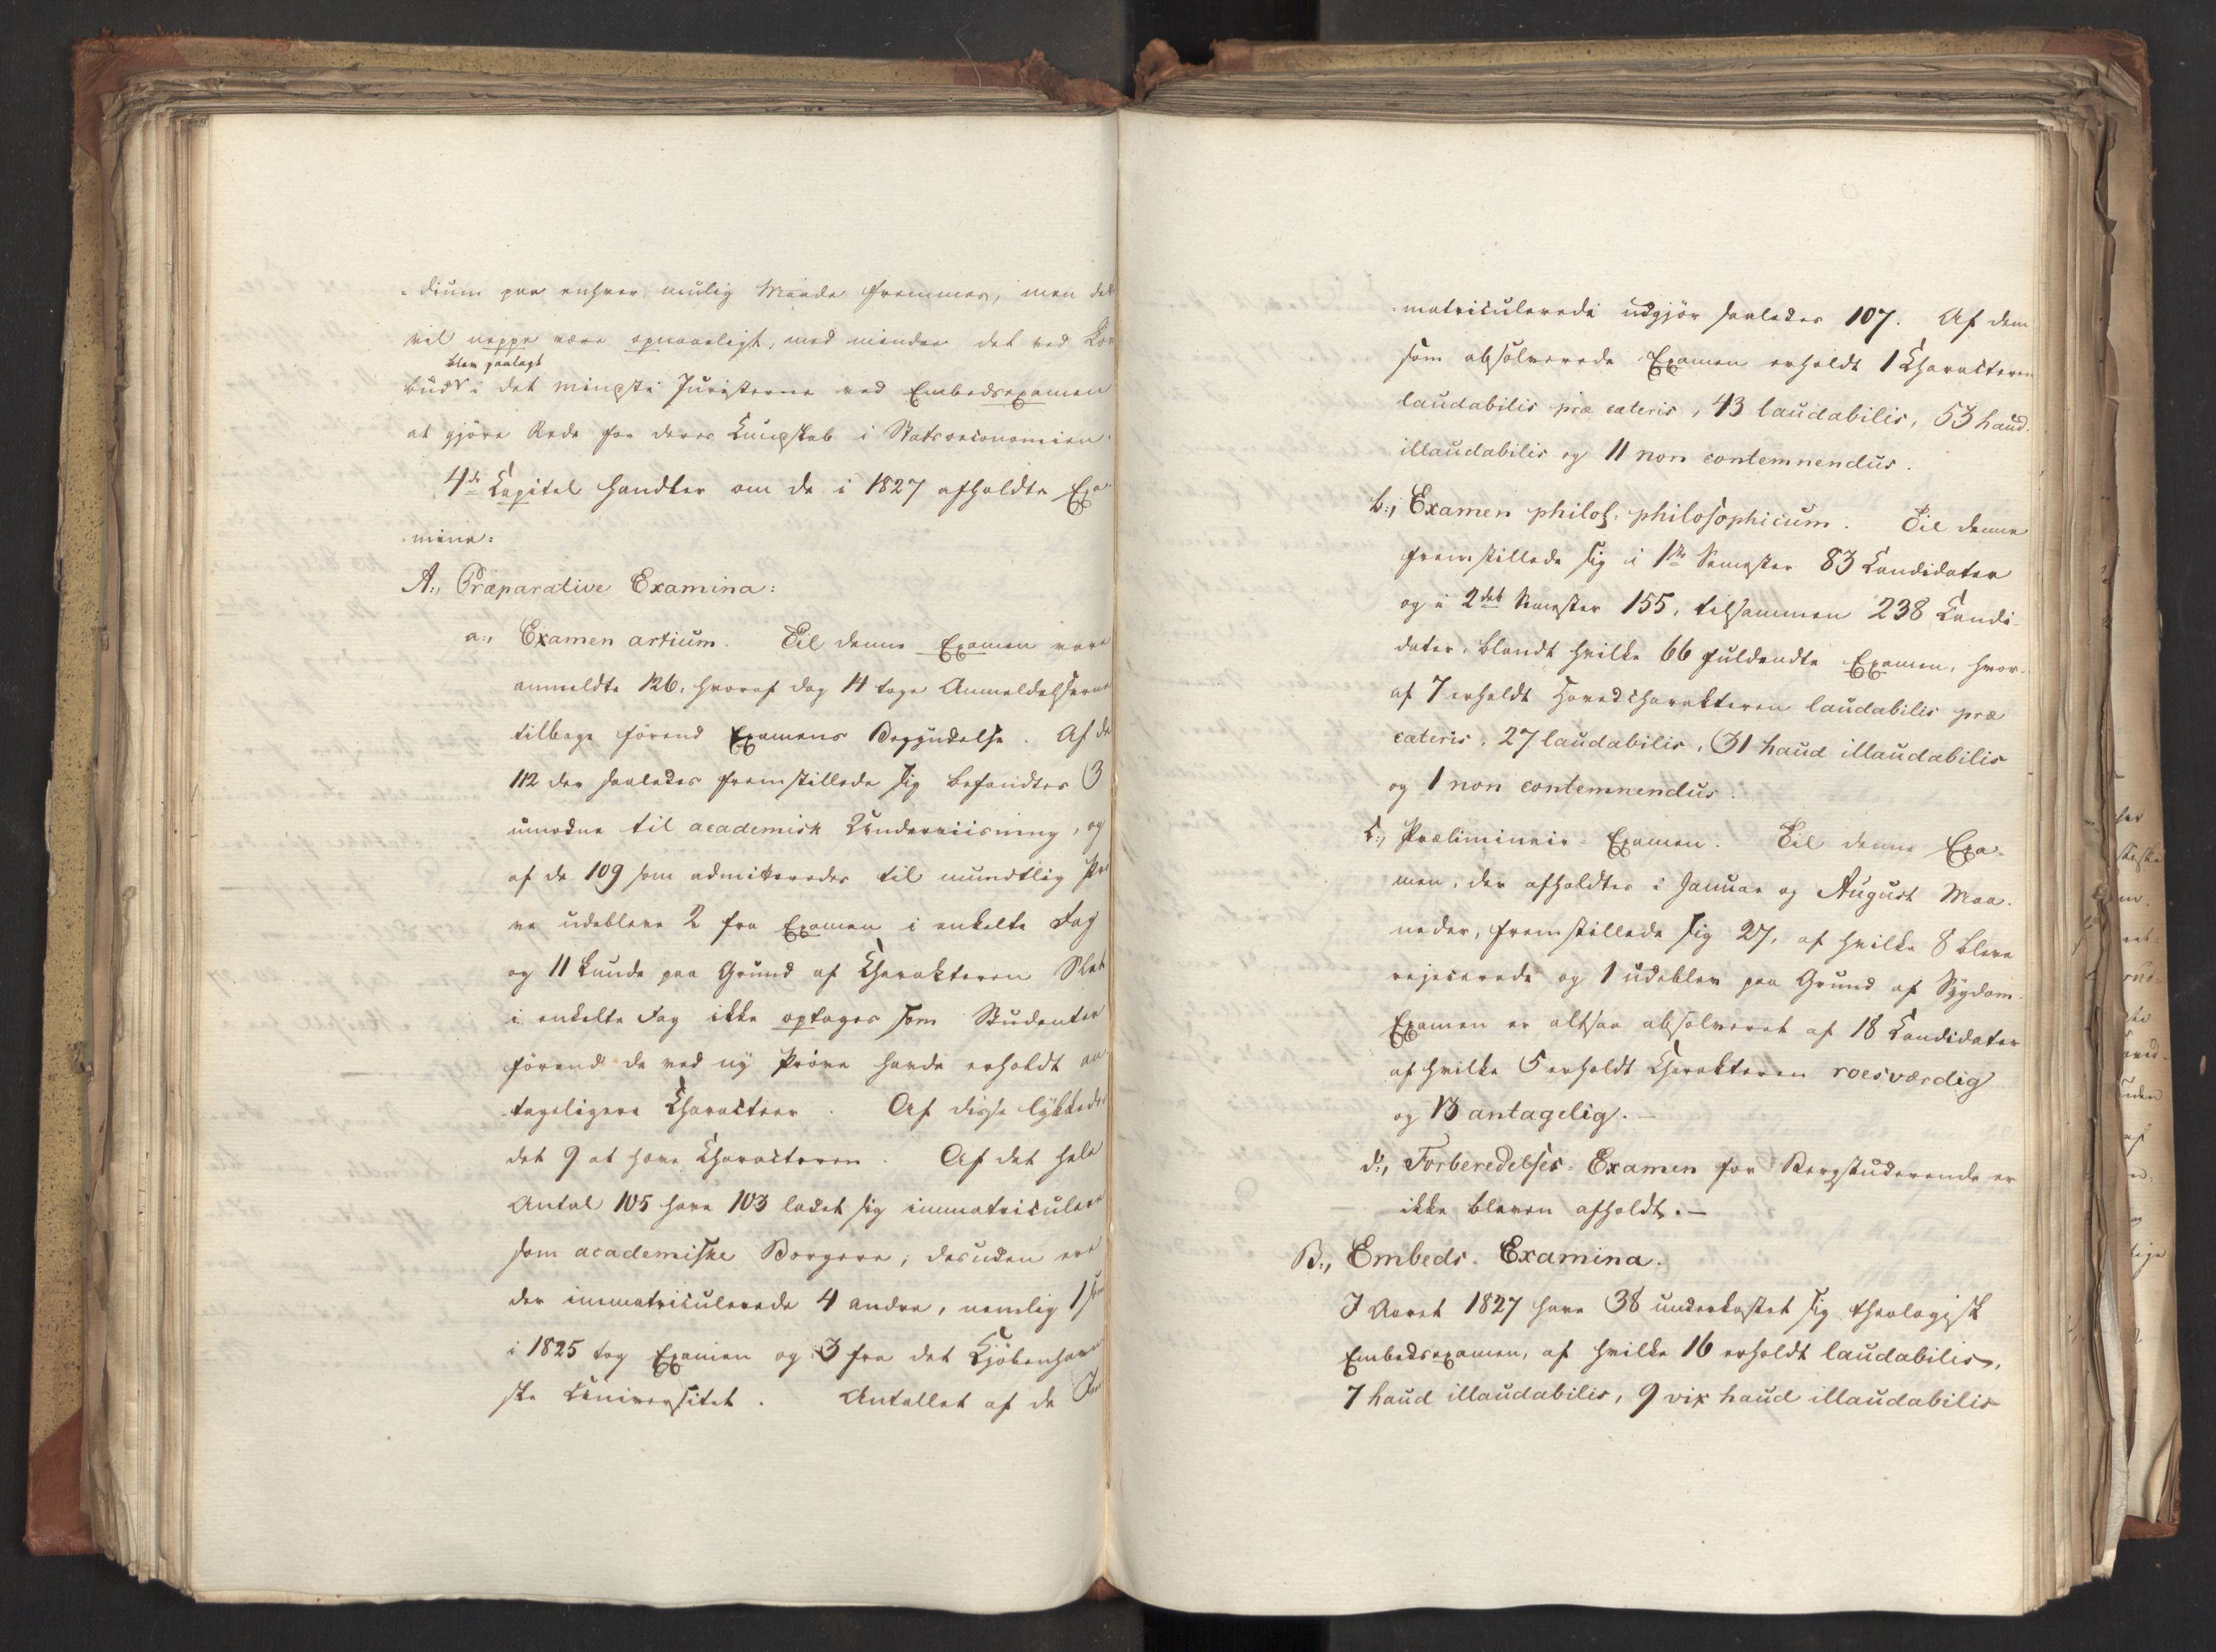 -dium paa enhver mulig Maade fremmes, men det
vil neppe være opnaaeligt, med mindre det ved Lov
blev paalagt
bud i det mindste Juristerne ved Embedsexamen
at gjöre Rede for deres Kundskab i Statsoeconomien.
4de Capitel handler om de i 1827 afholdte Exa-
-mina:
A., Præparative Examina:
a., Examen artium. Til denne Examen vare
anmeldte 126, hvoraf dog 14 toge Anmeldelserne
tilbage förend Examens Begyndelse. Af de
112 der saaledes fremstillede sig befandtes 3
umodne til academisk Underviisning, og
af de 109 som admitteredes til mundtlig Prö
ve udebleve 2 fra Examen i enkelte Fag
og 11 kunde paa Grund af Charakteren Slet
i enkelte Fag ikke optages som Studenter
förend de ved ny Pröve havde erholdt an
tageligere Characteer. Af disse lykkedes
det 9 at hæve Characteren. Af det hele
Antal 105 have 103 ladet sig immatriculere
som academiske Borgere; desuden ere
der immatriculerede 4 andre, nemlig 1 som
i 1825 tog Examen og 3 fra det Kjöbenhavn
ske Universitet. Antallet af de Im
matriculerede udgjör saaledes 107. Af dem
som absolverede Examen erholdt 1 Characteren
laudabilis præ cæteris, 43 laudabilis, 53 haud
illaudabilis og 11 non contemnendus.
b., Examen philol. philosophicum. Til denne
fremstillede sig i 1ste Semester 83 Candidater
og i 2det Semester 155, tilsammen 238 Candi-
dater, blandt hvilke 66 fuldendte Examen, hvor-
af 7 erholdt Hovedcharakteren laudabilis præ
cæteris, 27 laudabilis, 31 haud illaudabilis
og 1 non contemnendus.
c., Præliminair-Examen. Til denne Exa-
men, der afholdtes i Januar og August Maa-
neder, fremstillede sig 27, af hvilke 8 bleve
rejicerede og 1 udeblev paa Grund af Sygdom.
Examen er altsaa absolveret af 18 Candidater
af hvilke 5 erholdt Charakteren roesværdig
og 13 antagelig.-
d., Forberedelses-Examen for Bergstuderende er
ikke bleven afholdt.-
B., Embeds-Examina.
I Aaret 1827 have 38 underkastet sig theologisk
Embedsexamen, af hvilke 16 erholdt laudabilis,
7 haud illaudabilis, 9 vix haud illaudabilis